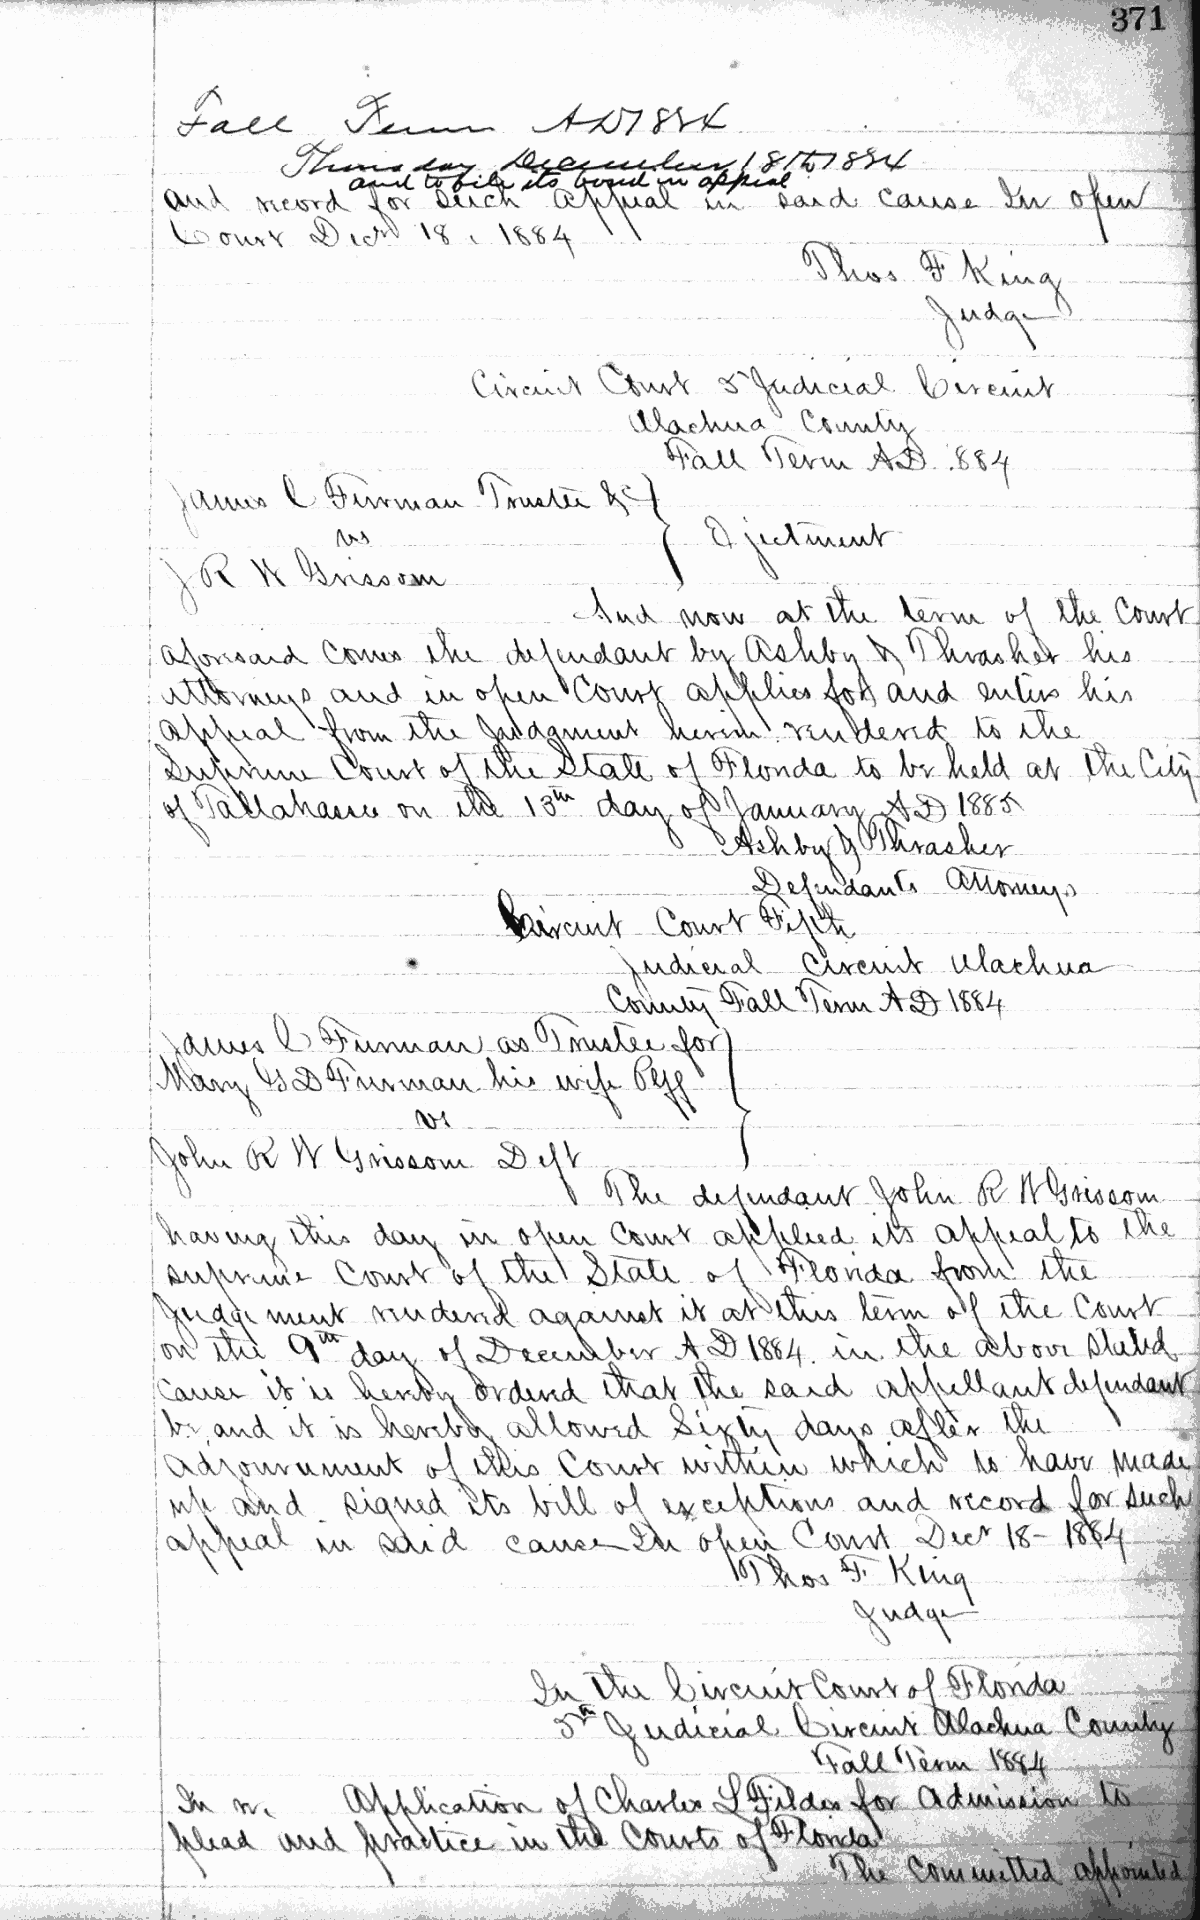 371
Fall Term AD 1884
Thursday December 18th 1884
and to file its bond in appeal
and record for such appeal in said cause In open
Court Decr 18, 1884
Thos F King
Judge
Circuit Court 5 Judicial Circuit
Alachua County
Fall Term AD 1884
James C Furman Trustee &c
vs
J R W Grissom
Ejectment
And now at the term of the Court
aforesaid comes the defendant by Ashby & Thrasher his
attorneys and in open Court applies for and enters his
appeal from the Judgment herein rendered to the
Supreme Court of the State of Florida to be held at the City
of Tallahassee on the 13th day of January AD 1885
Ashby & Thrasher
Defendants Attorneys
Circuit Court Fifth
Judicial Circuit Alachua
County Fall Term AD 1884
James C Furman as Trustee for
Mary G D Furman his wife Plff
vs
John R W Grissom Deft
The defendant John R W Grissom
having this day in open Court applied its appeal to the
supreme Court of the State of Florida from the
Judgement rendered against it at this term of the Court
on the 9th day of December AD 1884 in the above stated
cause it is hereby ordered that the said appellant defendant
be and it is hereby allowed Sixty days after the
adjournment of this Court within which to have made
up and signed its bill of exceptions and record for such
appeal in said cause In open Court Decr 18 - 1884
Thos F King
Judge
In the Circuit Court of Florida
5th Judicial Circuit Alachua County
Fall Term 1884
In re Application of Charles L Fildes for Admission to
plead and practice in the Courts of Florida
The Committed appointed